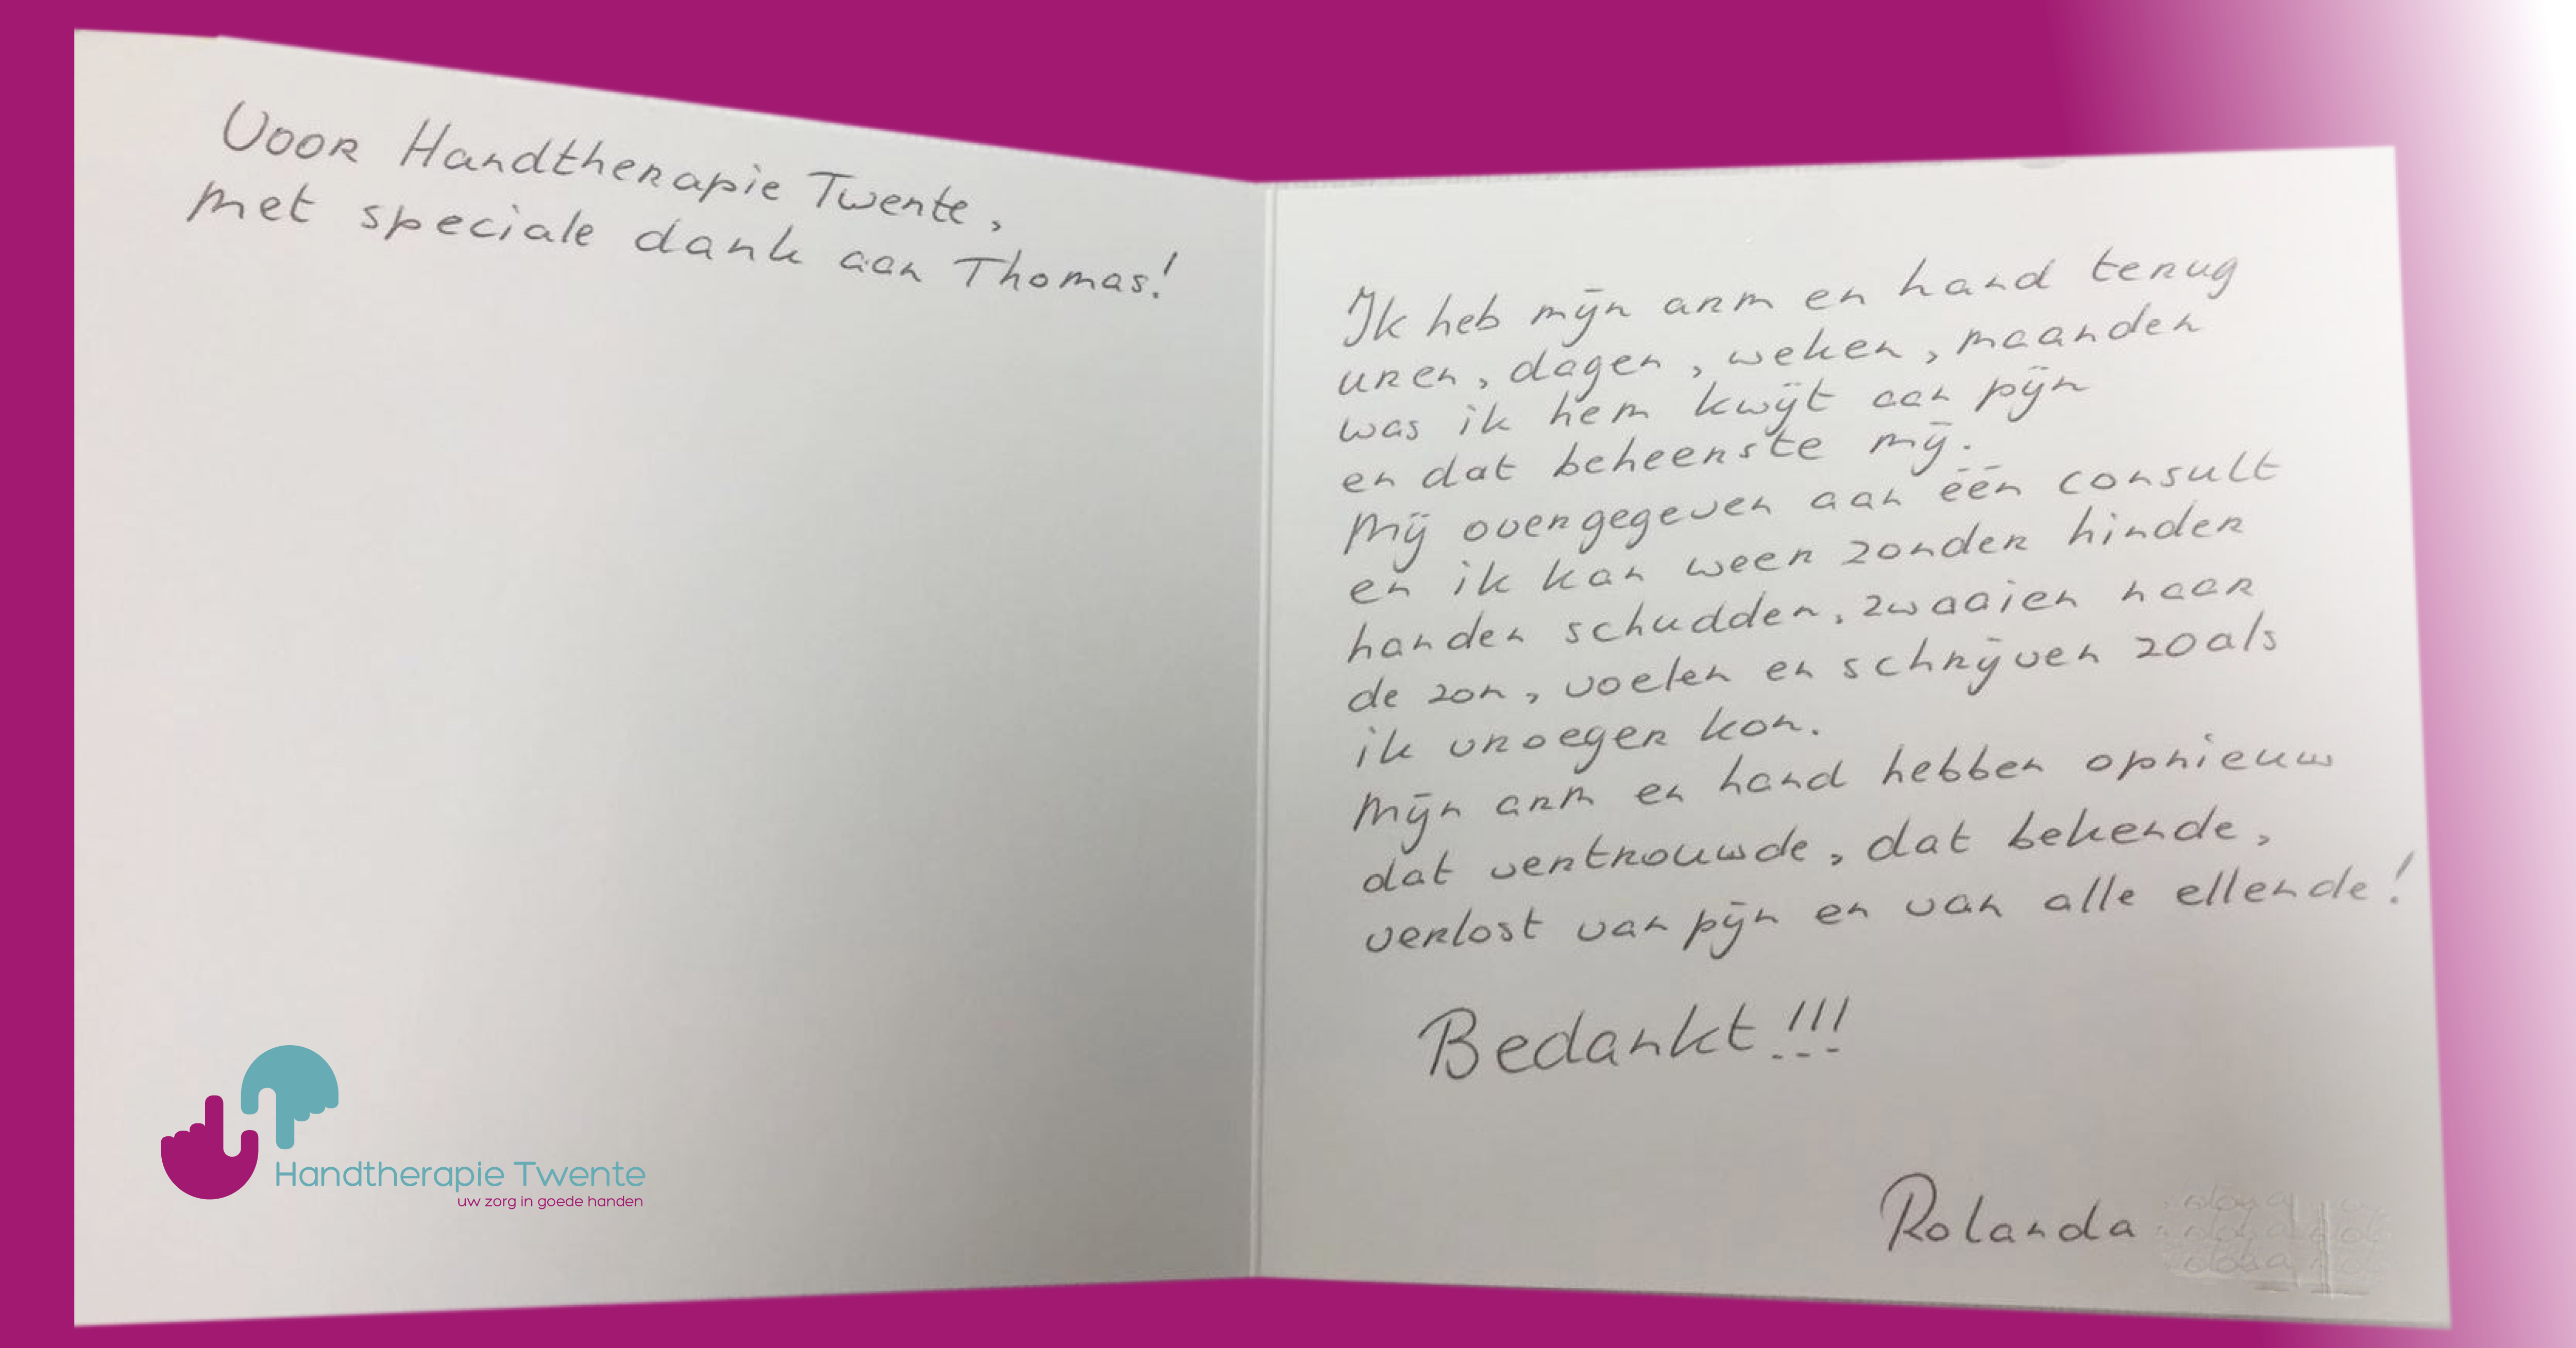 Voor Handtherapie Twente,
met speciale dank aan Thomas!
Ik heb mijn arm en hand terug
uren, dagen, weken, maanden
was ik hem kwijt aan pijn
en dat beheerste mij.
Mij overgegeven aan één consult
en ik kan weer zonder hinder
handen schudden, zwaaien naar
de zon, voelen en schrijven zoals
ik vroeger kon.
Mijn arm en hand hebben opnieuw
dat vertrouwde, dat bekende,
verlost van pijn en van alle ellende!
Bedankt!!!
Rolanda
Handtherapie Twente
uw zorg in goede handen